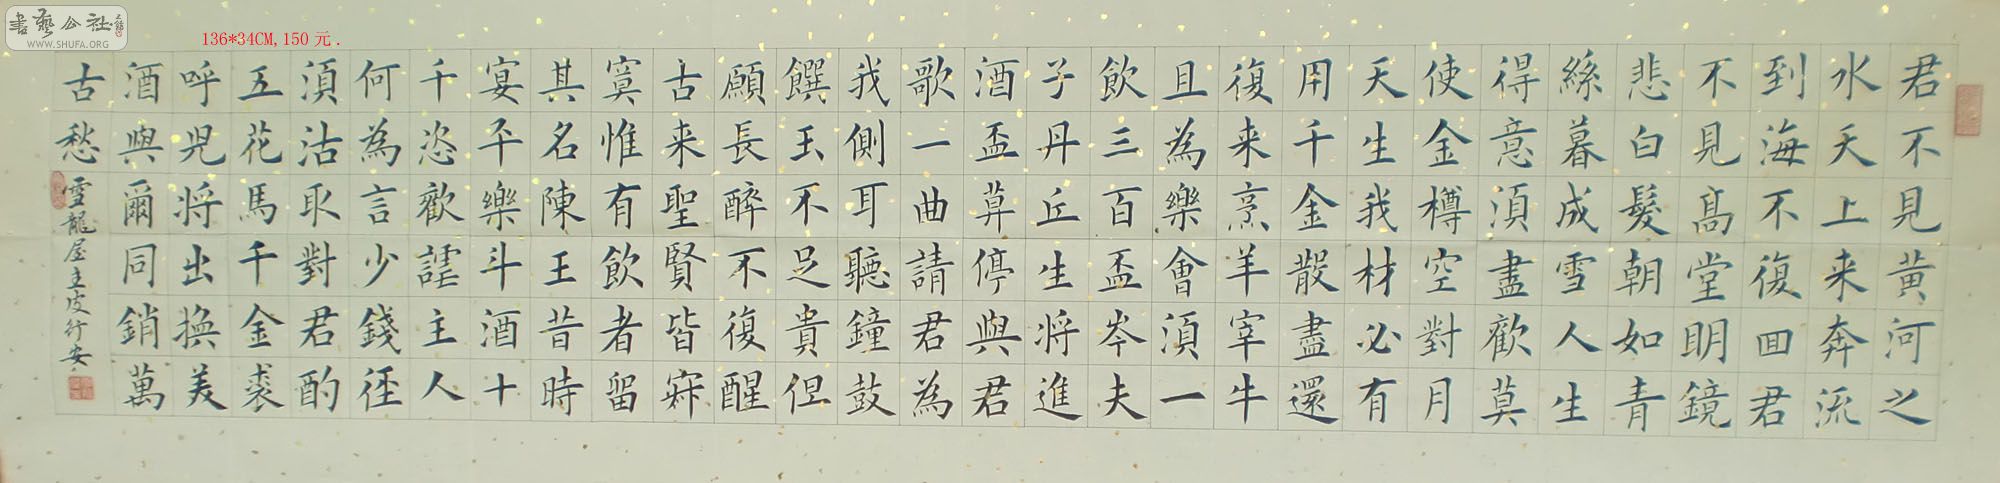 書藝公社
WWW.SHUFA.ORG
136*34CM,150元.
君不見黃河之
水天上来奔流
到海不復囬君
不見髙堂明鏡
悲白髮朝如青
絲暮成雪人生
得意須盡歡莫
使金樽空對月
天生我材必有
用千金散盡還
復来烹羊宰牛
且為樂會須一
飲三百盃岑夫
子丹丘生将進
酒盃莫停與君
歌一曲請君為
我側耳聽鐘鼓
饌玉不足貴但
願長醉不復醒
古来聖賢皆寂
寞惟有飲者留
其名陳王昔時
宴平樂斗酒十
千恣歡謔主人
何為言少錢徑
須沽取對君酌
五花馬千金裘
呼兒将出換美
酒與爾同銷萬
古愁
雪龍屋主皮行安